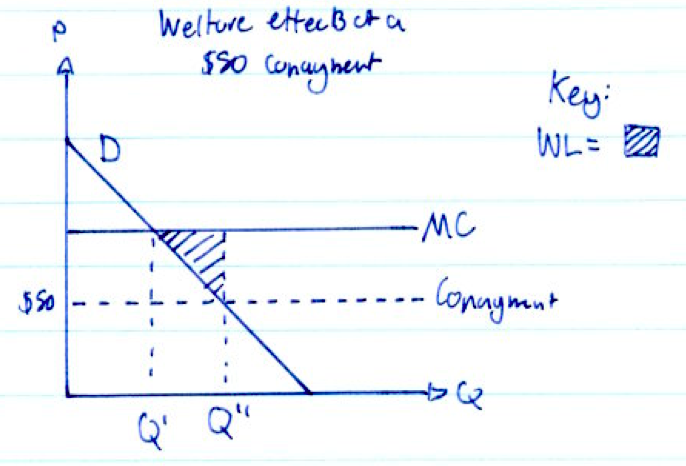 P
Welfare effects of a
$50 Copayment
Key:
WL=
D
MC
$50
Copayment
Q' Q''
Q